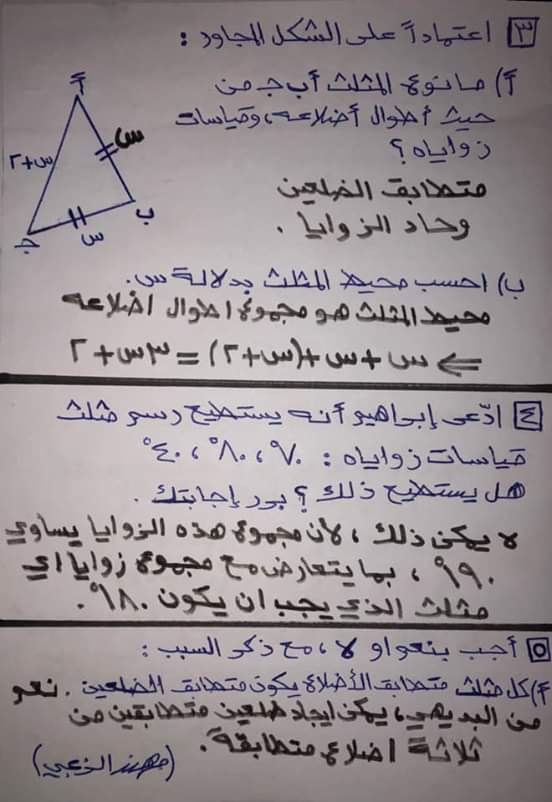 ٣ اعتماداً على الشكل المجاور :
أ) ما نوع المثلث أ ب جـ من
حيث أطوال أضلاعه، وقياسات
زواياه؟
متطابق الضلعين
وحاد الزوايا .
أ
س
س+٢
ب
س
جـ
ب) احسب محيط المثلث بدلالة س.
محيط المثلث هو مجموع اطوال اضلاعه
⇐ س + س + (س+٢) = ٣س + ٢
٤ ادّعى إبراهيم أنه يستطيع رسم مثلث
قياسات زواياه : ٧٠°، ٨٠°، ٤٠°
هل يستطيع ذلك ؟ برر إجابتك .
لا يمكن ذلك ، لأن مجموع هذه الزوايا يساوي
١٩٠° ، بما يتعارض مع مجموع زوايا اي
مثلث الذي يجب ان يكون ١٨٠°.
٥ أجب بنعم او لا ، مع ذكر السبب :
أ) كل مثلث متطابق الأضلاع يكون متطابق الضلعين . نعم
من البديهي، يمكن ايجاد ضلعين متطابقين من
ثلاثة اضلاع متطابقة .
(مهند الزعبي)